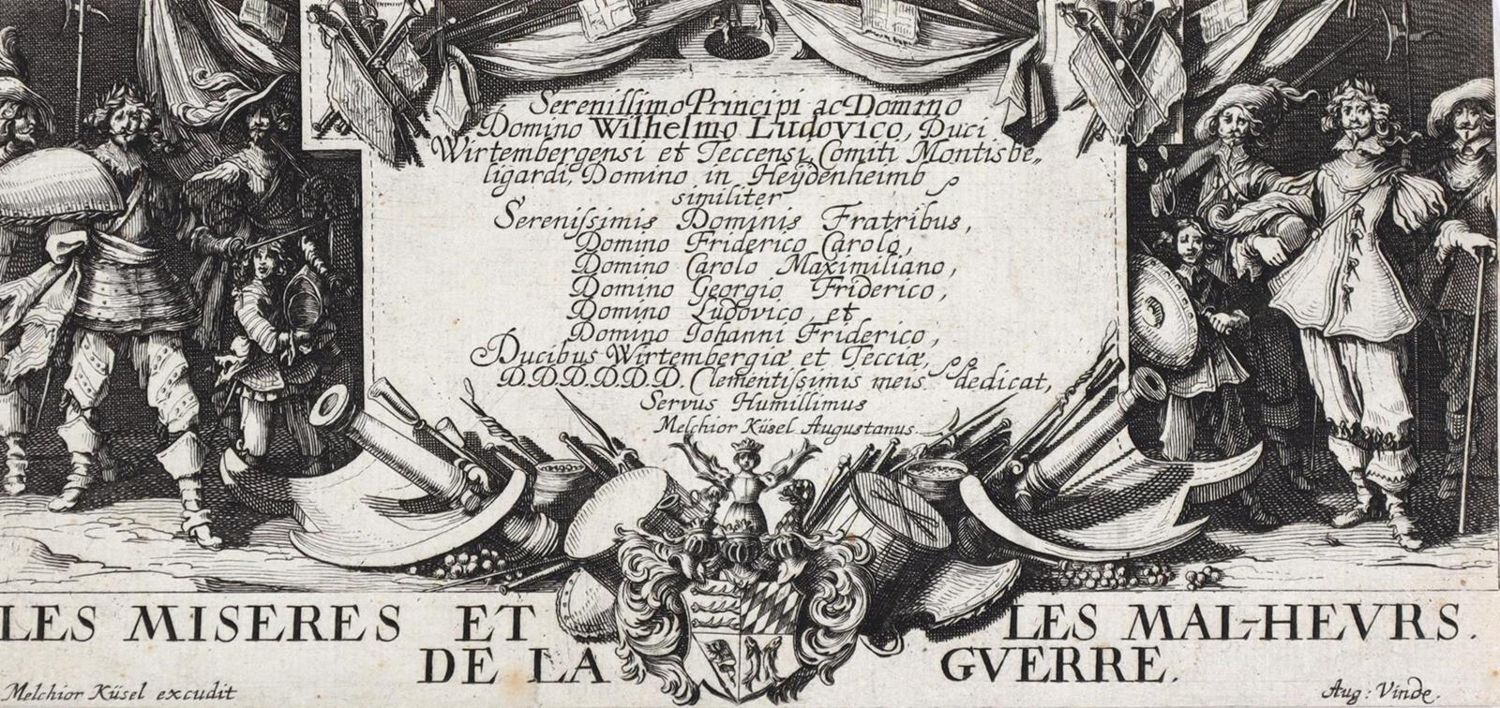 Serenissimo Principi ac Domino
Domino Wilhelmo Ludovico, Duci
Wirtembergensi et Teccensi, Comiti Montisbe„
ligardi, Domino in Heÿdenheimb
similiter
Serenissimis Dominis Fratribus,
Domino Friderico Carolo,
Domino Carolo Maximiliano,
Domino Georgio Friderico,
Domino Ludovico, et
Domino Iohanni Friderico,
Ducibus Wirtembergiæ et Tecciæ,
D.D.D.D.D.D. Clementissimis meis dedicat,
Servus Humillimus
Melchior Küsel Augustanus
LES MISERES ET LES MAL-HEVRS.
DE LA GVERRE.
Melchior Küsel excudit Aug: Vinde.